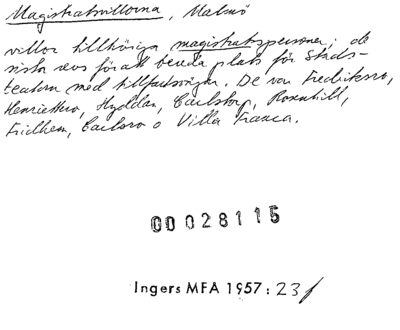 Magistratsvillorna, Malmö
villor tillhöriga magistratspersoner; de
sista revs för att bereda plats för Stads-
teatern med tillfartsvägar. De var Fredriksro,
Henriettero, Hyddan, Carlstorp, Rosenhill,
Fridhem, Carlsro o Villa Franca.
00028115
Ingers MFA 1957: 23f